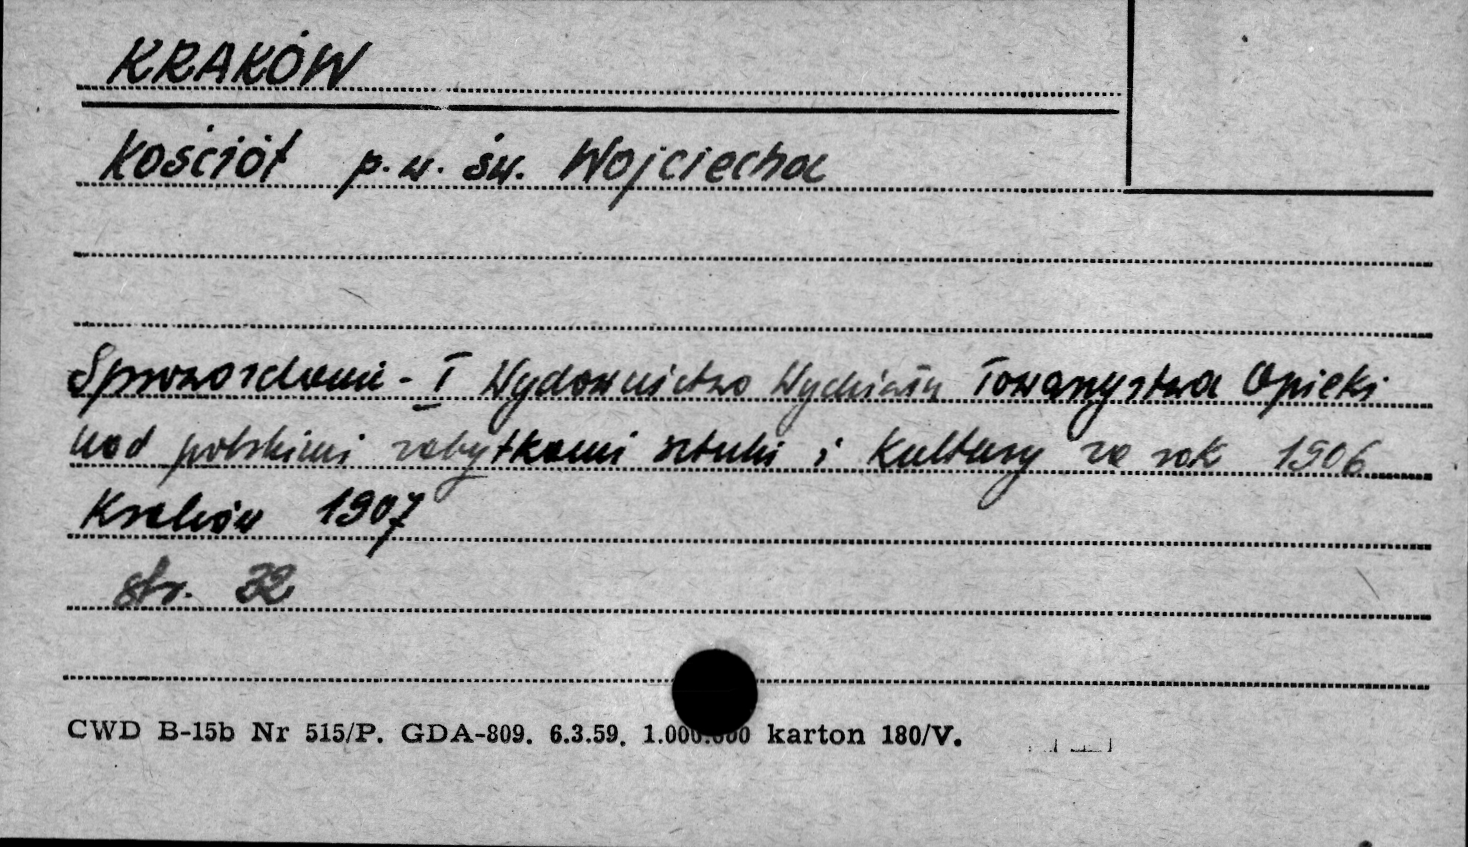 KRAKÓW
Kościół p.w. św. Wojciecha
Sprawozdanie - I Wydawnictwo Wydziału Towarzystwa Opieki
nad polskimi zabytkami sztuki i Kultury za rok 1906
Kraków 1907
str. 32
CWD B-15b Nr 515/P. GDA-809. 6.3.59. 1.000.000 karton 180/V.